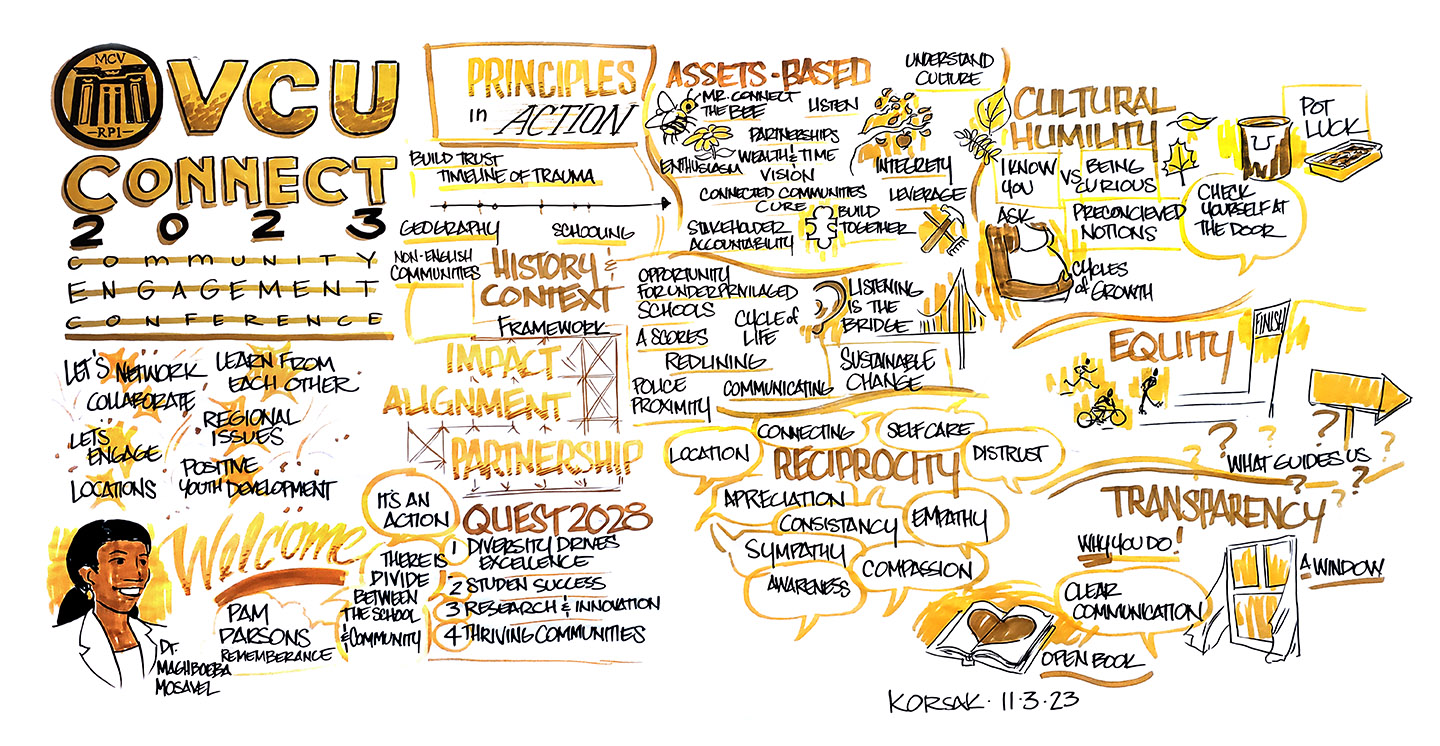 MCV
RPI
VCU
CONNECT
2023
COMMUNITY
ENGAGEMENT
CONFERENCE
LET'S NETWORK
COLLABORATE
LEARN FROM
EACH OTHER
REGIONAL
ISSUES
LETS
ENGAGE
LOCATIONS
POSITIVE
YOUTH DEVELOPMENT
Welcome
Dr.
MAGHBOEBA
MOSAVEL
PAM
PARSONS
REMEMBERANCE
IT'S AN
ACTION
THERE IS
DIVIDE
BETWEEN
THE SCHOOL
& COMMUNITY
PRINCIPLES
in ACTION
BUILD TRUST
TIMELINE OF TRAUMA
GEOGRAPHY
SCHOOLING
NON-ENGLISH
COMMUNITIES
HISTORY &
CONTEXT
FRAMEWORK
IMPACT
ALIGNMENT
PARTNERSHIP
QUEST 2028
1 DIVERSITY DRIVES
EXCELLENCE
2 STUDEN SUCCESS
3 RESEARCH & INNOVATION
4 THRIVING COMMUNITIES
ASSETS-BASED
UNDERSTAND
CULTURE
MR. CONNECT
THE BEE
LISTEN
PARTNERSHIPS
ENTHUSIASM
WEALTH & TIME
VISION
INTEGRETY
CONNECTED COMMUNITIES
CURE
LEVERAGE
STAKEHOLDER
ACCOUNTABILITY
BUILD
TOGETHER
OPPORTUNITY
FOR UNDERPRIVILAGED
SCHOOLS
A SCORES
CYCLE of
LIFE
LISTENING
IS THE
BRIDGE
REDLINING
SUSTAINABLE
CHANGE
POLICE
PROXIMITY
COMMUNICATING
CONNECTING
SELF CARE
LOCATION
RECIPROCITY
DISTRUST
APRECIATION
CONSISTANCY
EMPATHY
SYMPATHY
COMPASSION
AWARENESS
CULTURAL
HUMILITY
POT
LUCK
I KNOW
YOU
VS
BEING
CURIOUS
ASK
PRECONCIEVED
NOTIONS
CHECK
YOURSELF AT
THE DOOR
CYCLES
of GROWTH
EQUITY
FINISH
WHAT GUIDES US
? ? ? ? ? ?
TRANSPARENCY
WHY YOU DO!
A WINDOW
CLEAR
COMMUNICATION
OPEN BOOK
KORSAK · 11·3·23